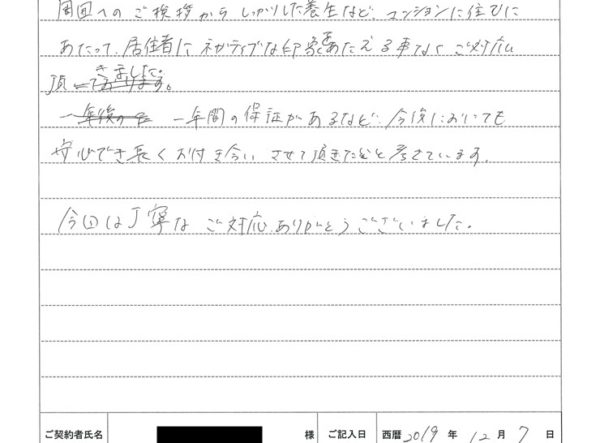 周囲へのご挨拶からしっかりした養生など、マンションに住むに
あたって、居住者にネガティブな印象をあたえる事なくご対応
頂きました。
一年間の保証があるなど、今後においても
安心でき長くお付き合いさせて頂きたいと考えています。
今回は丁寧なご対応ありがとうございました。
ご契約者氏名 様 ご記入日 西暦 2019 年 12 月 7 日